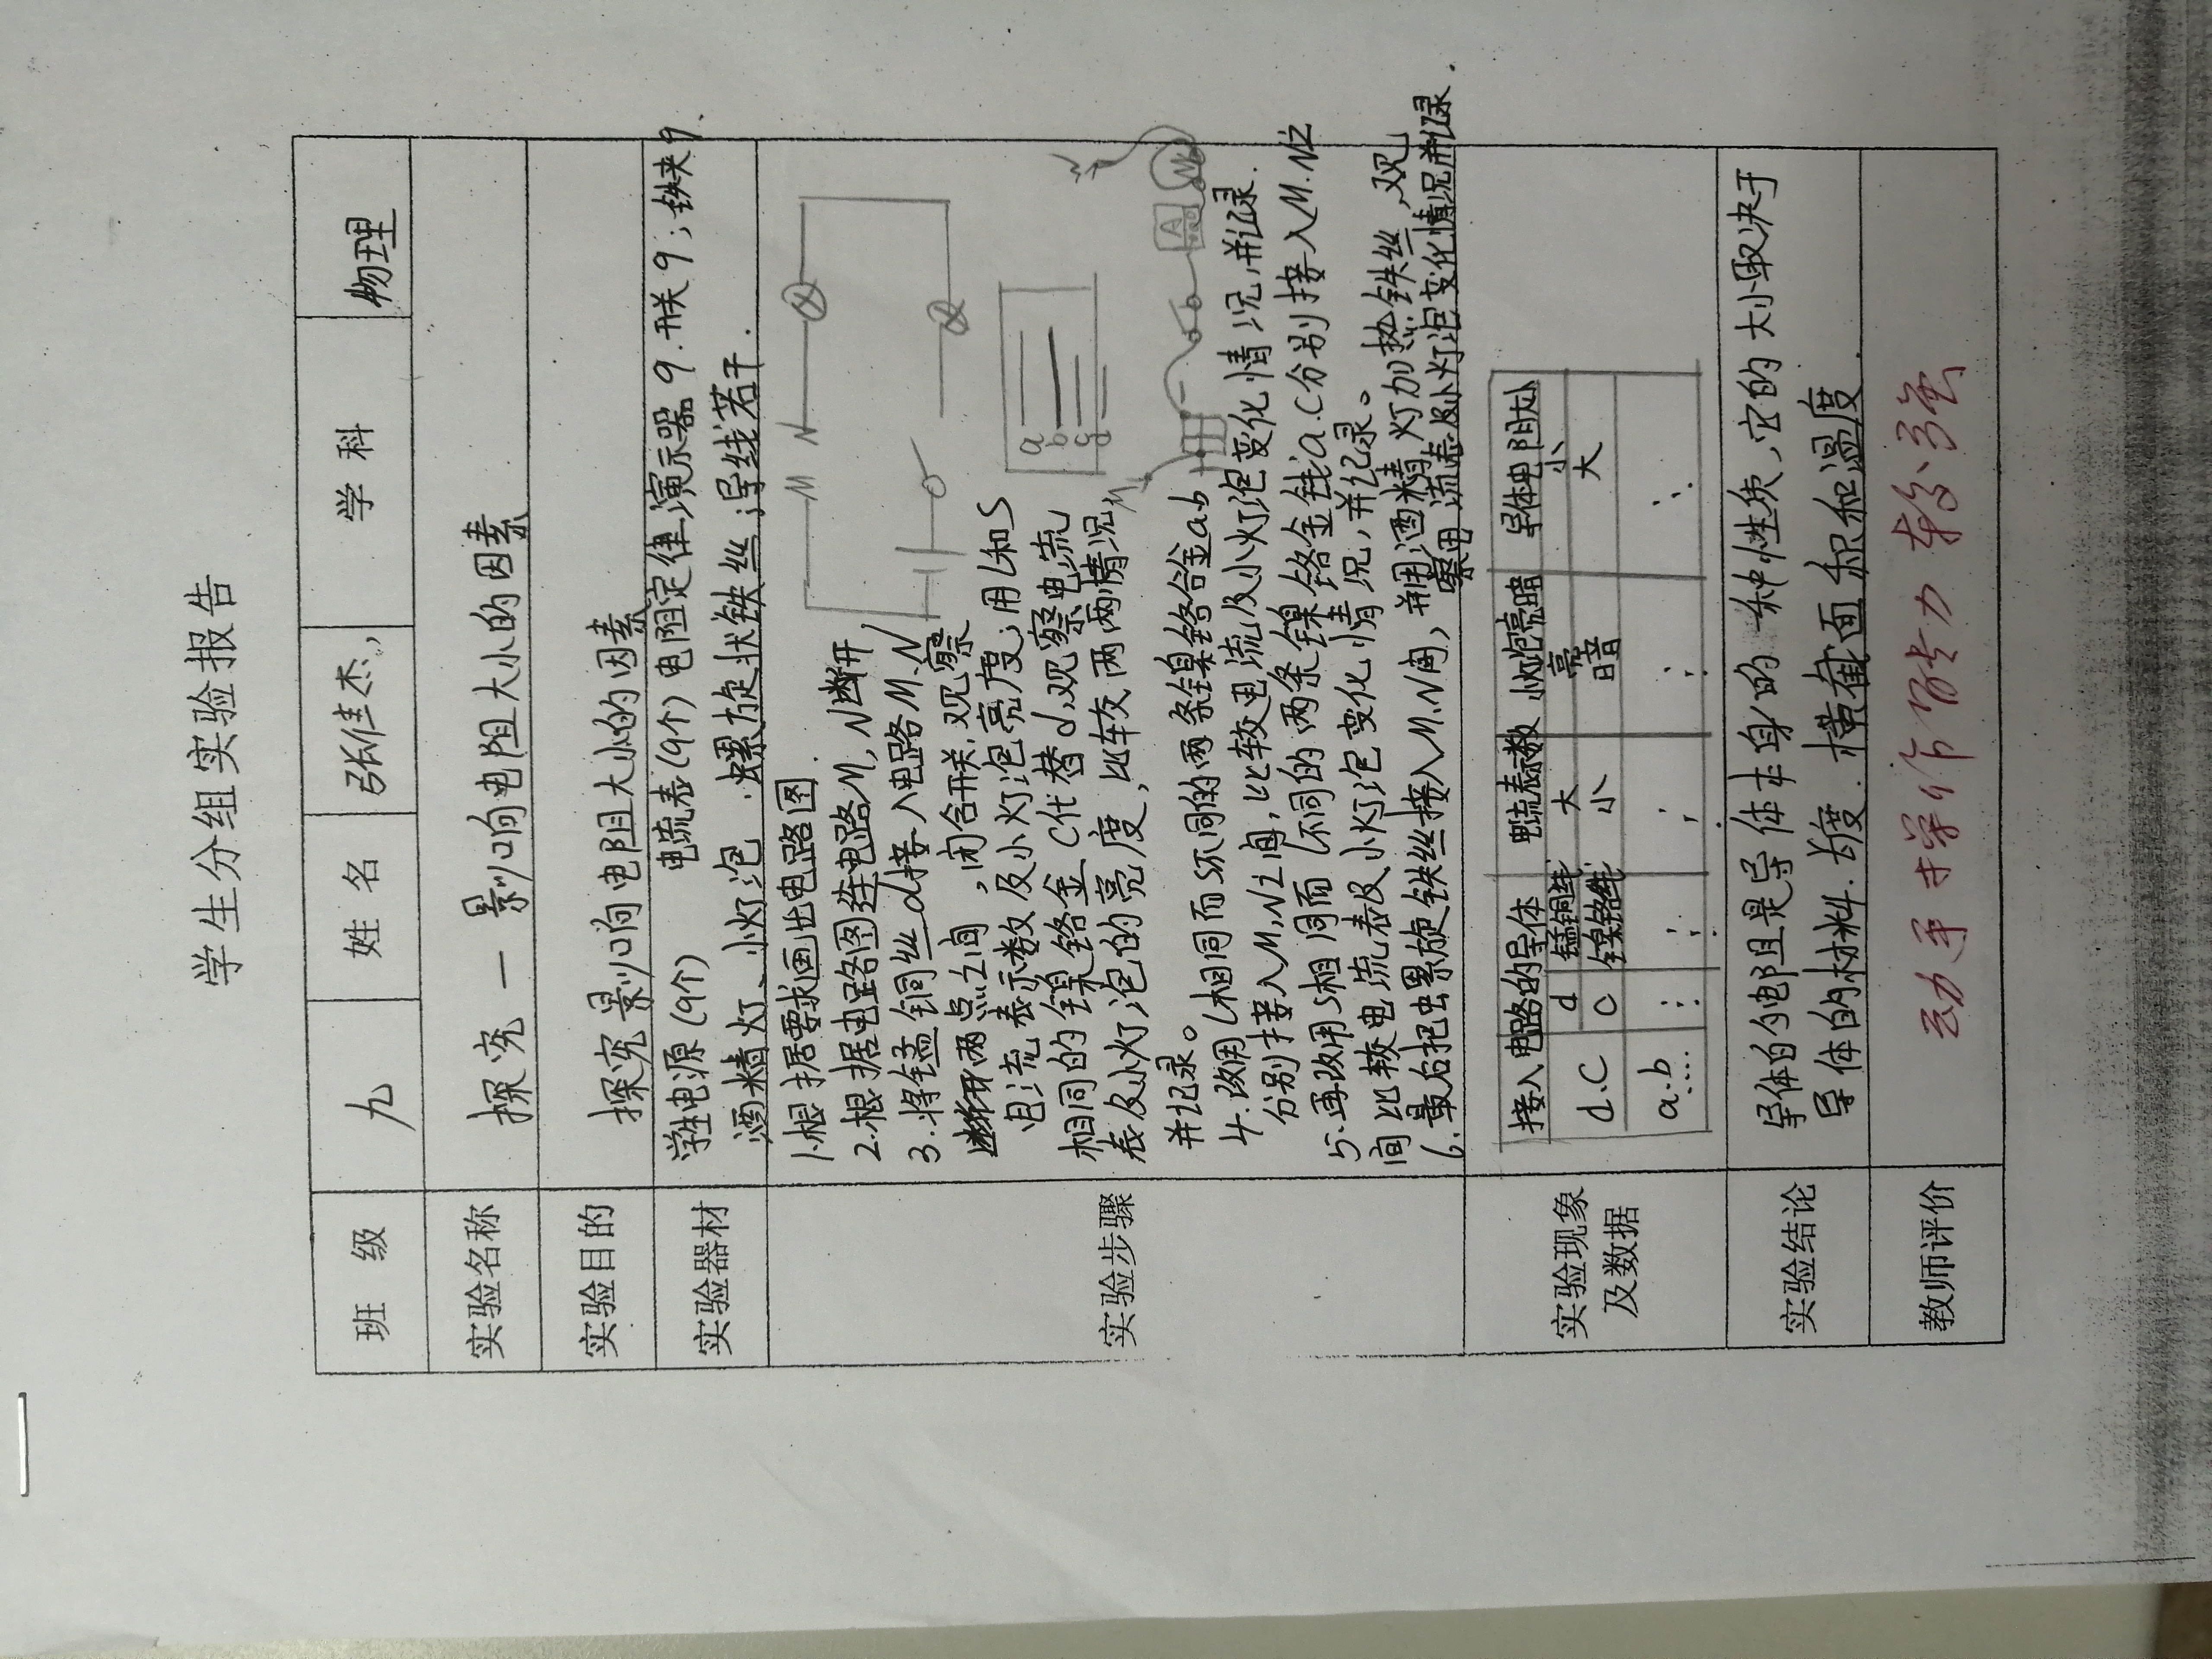 学生分组实验报告
班 级 九 姓 名 张佳杰, 学 科 物理
实验名称 探究一影响电阻大小的因素
实验目的 探究影响电阻大小的因素
实验器材 学生电源(9个) 电流表(9个) 电阻定律演示器9.开关9;铁夹9.
酒精灯、小灯泡.螺旋状铁丝;导线若干.
实验步骤
1.根据要求画出电路图.
2.根据电路图连电路M,N断开
3.将锰铜丝d接入电路M.N
断开两点之间,闭合开关,观察
电流表示数及小灯泡亮度;用L和S
相同的镍铬合金C代替d,观察电流
表及小灯泡的亮度,比较两两情况
并记录。
4.改用L相同而S不同的两条镍铬合金ab
分别接入M,N之间,比较电流及小灯泡变化情况,并记录.
5.再改用S相同而L不同的两条镍铬合金线a.C分别接入M.N之
间比较电流表及小灯泡变化情况,并记录。
6.最后把螺旋铁丝接入M.N间,并用酒精灯加热铁丝,观
察电流表及小灯泡变化情况并记录.
M N
a
b
c
d
M
N
A
实验现象
及数据
接入电路的导体 电流表示数 小灯泡亮暗 导体电阻大小
d.C d 锰铜线 大 亮 小
C 镍铬线 小 暗 大
a.b
实验结论 导体的电阻是导体本身的一种性质,它的大小取决于
导体的材料.长度.横截面积和温度.
教师评价 动手操作能力较强